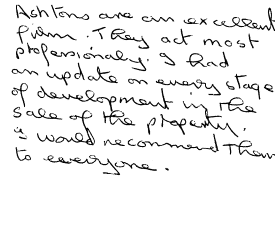 Ashtons are an excellent
firm. They act most
profesionaly. I had
an update on every stage
of development in the
sale of the property.
I would recommend them
to everyone.